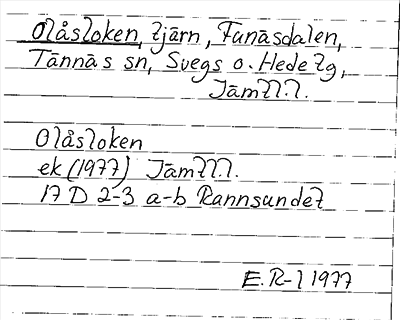 Olåsloken, tjärn, Funäsdalen,
Tännäs sn, Svegs o. Hede tg,
Jämtl.l.
Olåsloken
ek (1977) Jämtl.l.
17 D 2-3 a-b Rannsundet
E.R-l 1977